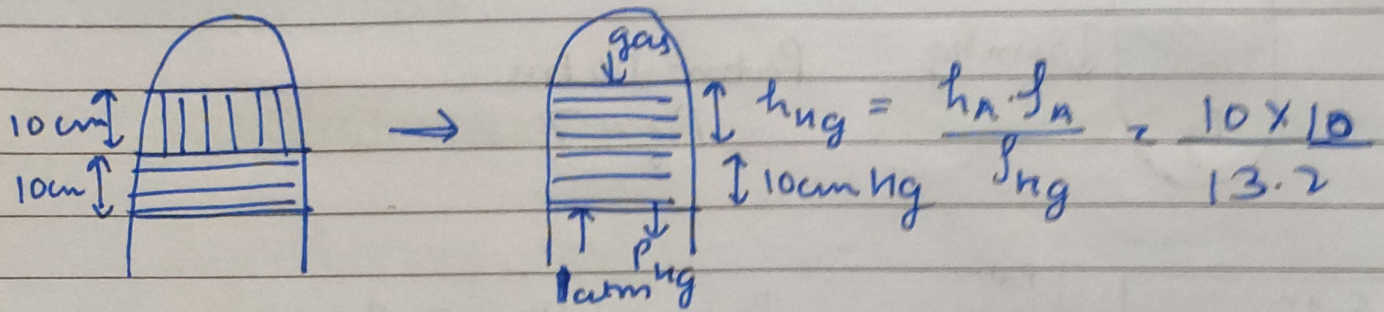 10cm
10cm
gas
h_Hg = h_A · ρ_A / ρ_Hg = 10 × 10 / 13.2
10cm Hg
P_Hg
1atm